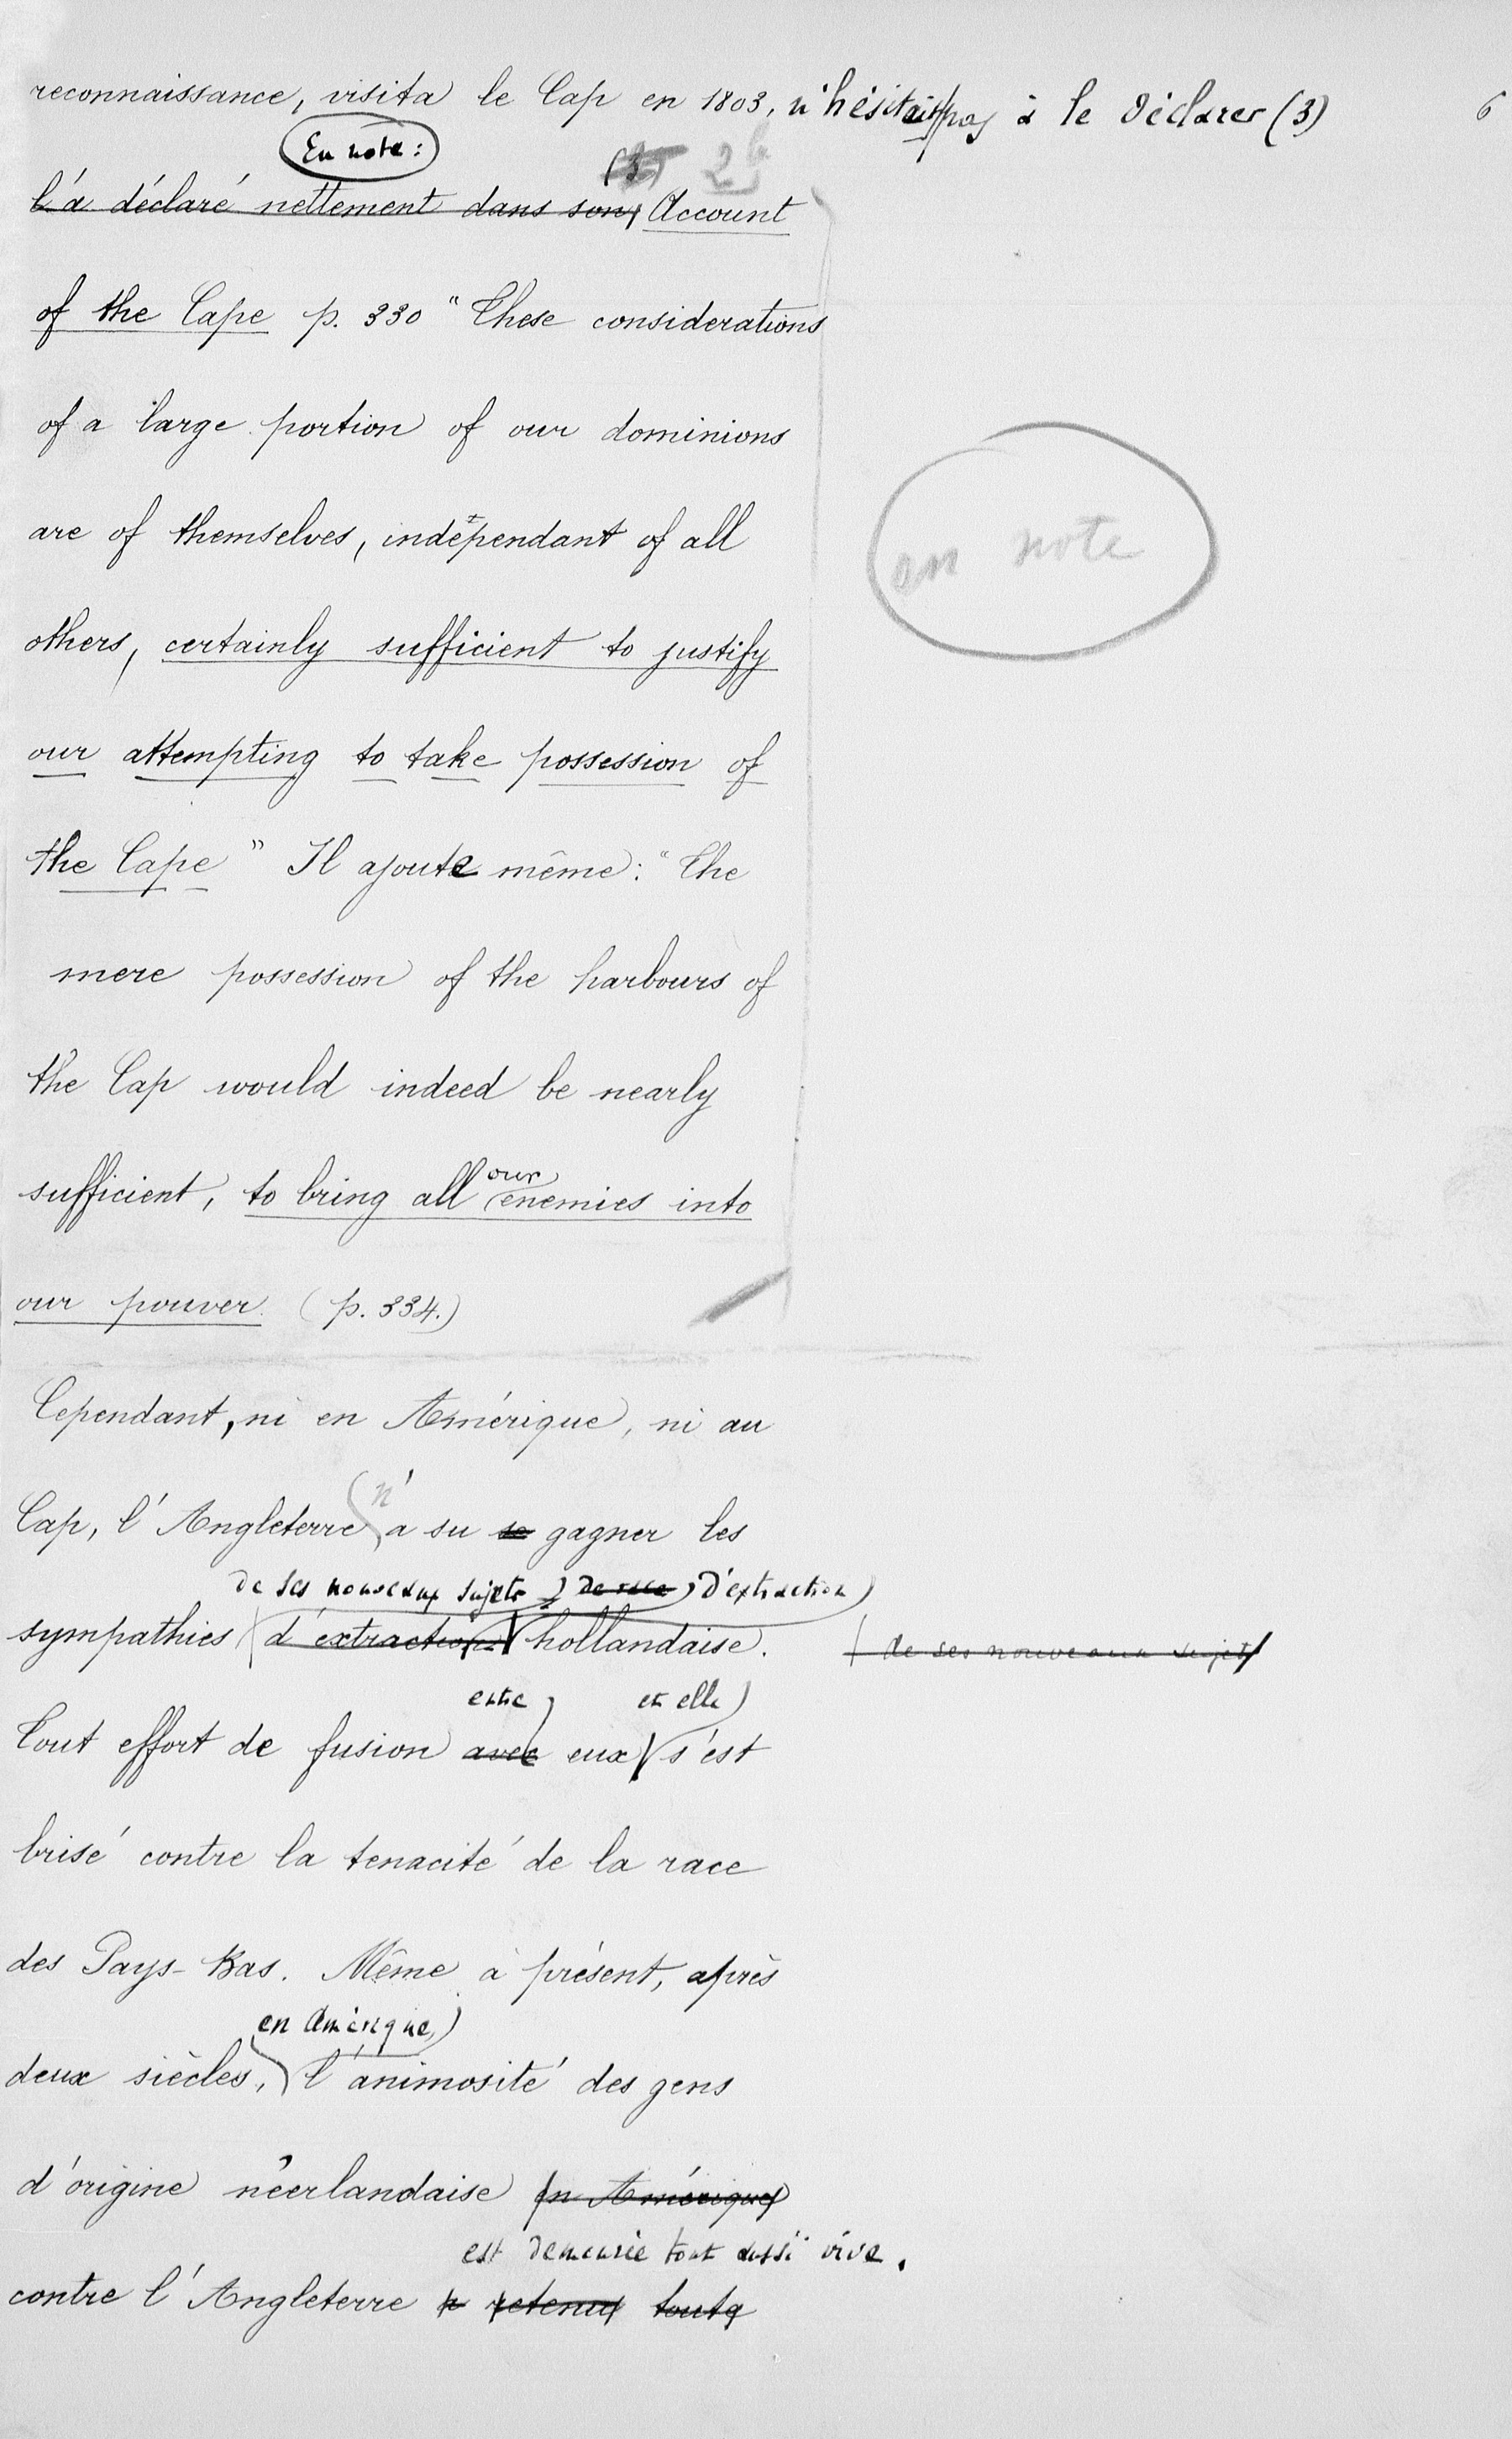 reconnaissance, visita le Cap en 1803, n'hésitait pas à le déclarer (3) 6
En note:
(3) 2b
l'a déclaré nettement dans son Account
of the Cape p. 330 "These considerations
of a large portion of our dominions
are of themselves, indépendant of all
en note
others, certainly sufficient to justify
our attempting to take possession of
the Cape" Il ajoute même: "The
mere possession of the harbours of
the Cap would indeed be nearly
our
sufficient, to bring all enemies into
our pouver (p. 334.)
Cependant, ni en Amérique, ni au
n'
Cap, l'Angleterre a su se gagner les
de ses nouveaux sujets de race d'extraction
sympathies d'extraction hollandaise. de ses nouveaux sujets
entre et elle
Tout effort de fusion avec eux s'est
brisé contre la tenacité de la race
des Pays-Bas. Même à présent, après
en Amérique,
deux siècles, l'animosité des gens
d'origine néerlandaise en Amérique
est demeurée tout aussi vive.
contre l'Angleterre a retenu toute